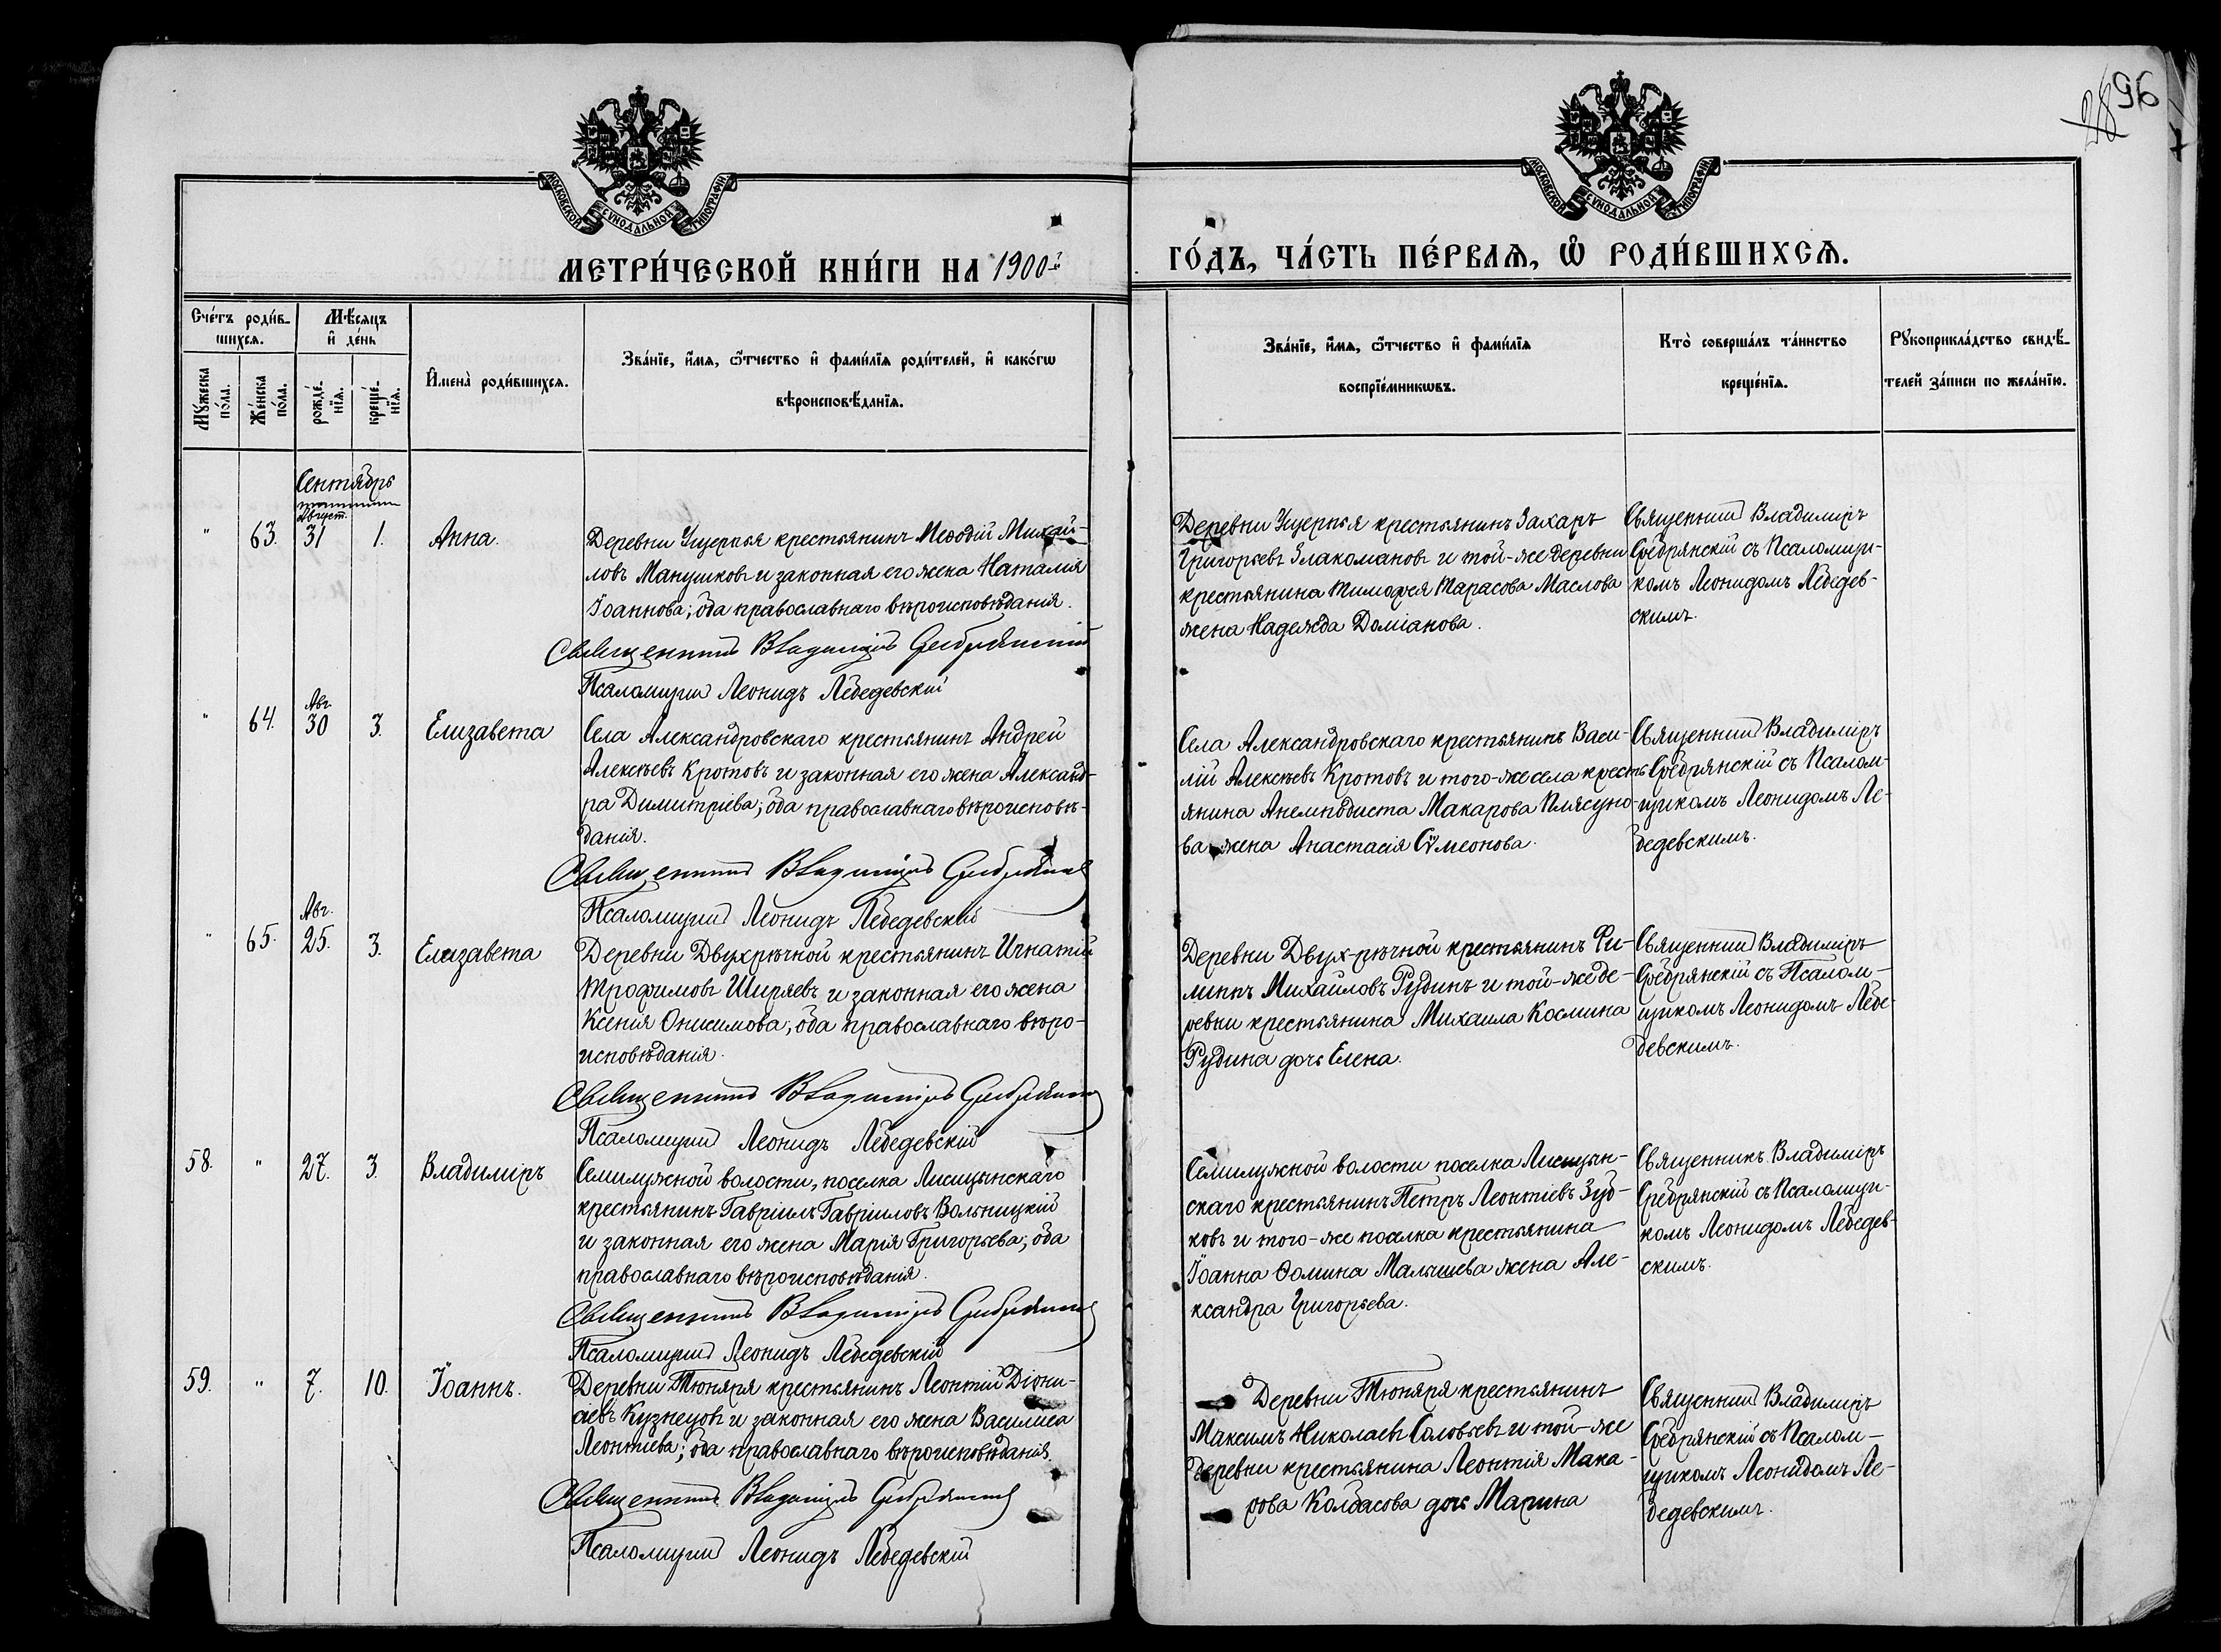 28 96
МОСКОВСКОЙ СѴНОДАЛЬНОЙ ТИПОГРАФІИ
МОСКОВСКОЙ СѴНОДАЛЬНОЙ ТИПОГРАФІИ
МЕТРИ́ЧЕСКОЙ КНИ́ГИ НА 1900й
ГО́ДЪ, ЧА́СТЬ ПЕ́РВАѦ, Ѡ҆ РОДИ́ВШИХСѦ.
Сче́тъ роди́в-
шихсѧ.
Мѣ́сѧцъ
и҆ де́нь
Мꙋ́жеска
по́ла.
Же́нска
по́ла.
рожде́-
нїѧ.
креще́-
нїѧ.
И҆мена̀ роди́вшихсѧ.
Зва́нїе, и҆́мѧ, ѻ҆́тчество и҆ фами́лїѧ роди́телей, и҆ како́гѡ
вѣроисповѣ́данїѧ.
Зва́нїе, и҆́мѧ, ѻ҆́тчество и҆ фами́лїѧ
воспрїе́мникѡвъ.
Кто̀ соверша́лъ та́инство
креще́нїѧ.
Рꙋкоприкла́дство свидѣ́-
телей за́писи по жела́нїю.
Сентябрь
Август.
" 63. 31 1. Анна.
Деревни Ущерпья крестьянинъ Меѳодій Михай-
ловъ Манушковъ и законная его жена Наталія
Іоаннова; оба православнаго вѣроисповѣданія.
Священникъ Владиміръ Сребрянскій
Псаломщикъ Леонидъ Лебедевскій
Деревни Ущерпья крестьянинъ Захаръ
Григорьевъ Злакомановъ и той-же деревни
крестьянина Тимофея Тарасова Маслова
жена Надежда Доміанова.
Священникъ Владиміръ
Сребрянскій съ Псаломщи-
комъ Леонидомъ Лебедев-
скимъ.
Авг.
" 64. 30 3. Елизавета
Села Александровскаго крестьянинъ Андрей
Алексѣевъ Кротовъ и законная его жена Александ-
ра Димитріева; оба православнаго вѣроисповѣ-
данія.
Священникъ Владиміръ Сребрянскій
Псаломщикъ Леонидъ Лебедевскій
Села Александровскаго крестьянинъ Васи-
лій Алексѣевъ Кротовъ и того-же села кресть-
янина Анемподиста Макарова Плясуно-
ва жена Анастасія Сѵмеонова.
Священникъ Владиміръ
Сребрянскій съ Псалом-
щикомъ Леонидомъ Ле-
бедевскимъ.
Авг.
" 65. 25. 3. Елизавета
Деревни Двухрѣчной крестьянинъ Игнатій
Трофимовъ Ширяевъ и законная его жена
Ксенія Онисимова; оба православнаго вѣро-
исповѣданія.
Священникъ Владиміръ Сребрянскій
Псаломщикъ Леонидъ Лебедевскій
Деревни Двух-рѣчной крестьянинъ Фи-
липпъ Михайловъ Рудинъ и той-же де-
ревни крестьянина Михаила Космина
Рудина дочь Елена.
Священникъ Владиміръ
Сребрянскій съ Псалом-
щикомъ Леонидомъ Лебе-
девскимъ.
58. " 27. 3. Владиміръ
Семилужной волости, поселка Лисицынскаго
крестьянинъ Гавріилъ Гавріиловъ Вольницкій
и законная его жена Марія Григорьева; оба
православнаго вѣроисповѣданія.
Священникъ Владиміръ Сребрянскій
Псаломщикъ Леонидъ Лебедевскій
Семилужной волости поселка Лисицын-
скаго крестьянинъ Петръ Леонтіевъ Зуб-
ковъ и того-же поселка крестьянина
Іоанна Ѳомина Малышева жена Але-
ксандра Григорьева.
Священникъ Владиміръ
Сребрянскій съ Псаломщи-
комъ Леонидомъ Лебедев-
скимъ.
59. " 7. 10. Іоаннъ.
Деревни Тюняря крестьянинъ Леонтій Діони-
сіевъ Кузнецовъ и законная его жена Василиса
Леонтіева; оба православнаго вѣроисповѣданія.
Священникъ Владиміръ Сребрянскій
Псаломщикъ Леонидъ Лебедевскій
Деревни Тюняря крестьянинъ
Максимъ Николаевъ Соловьевъ и той-же
деревни крестьянина Леонтія Мака-
рова Колбасова дочь Марина
Священникъ Владиміръ
Сребрянскій съ Псалом-
щикомъ Леонидомъ Ле-
бедевскимъ.